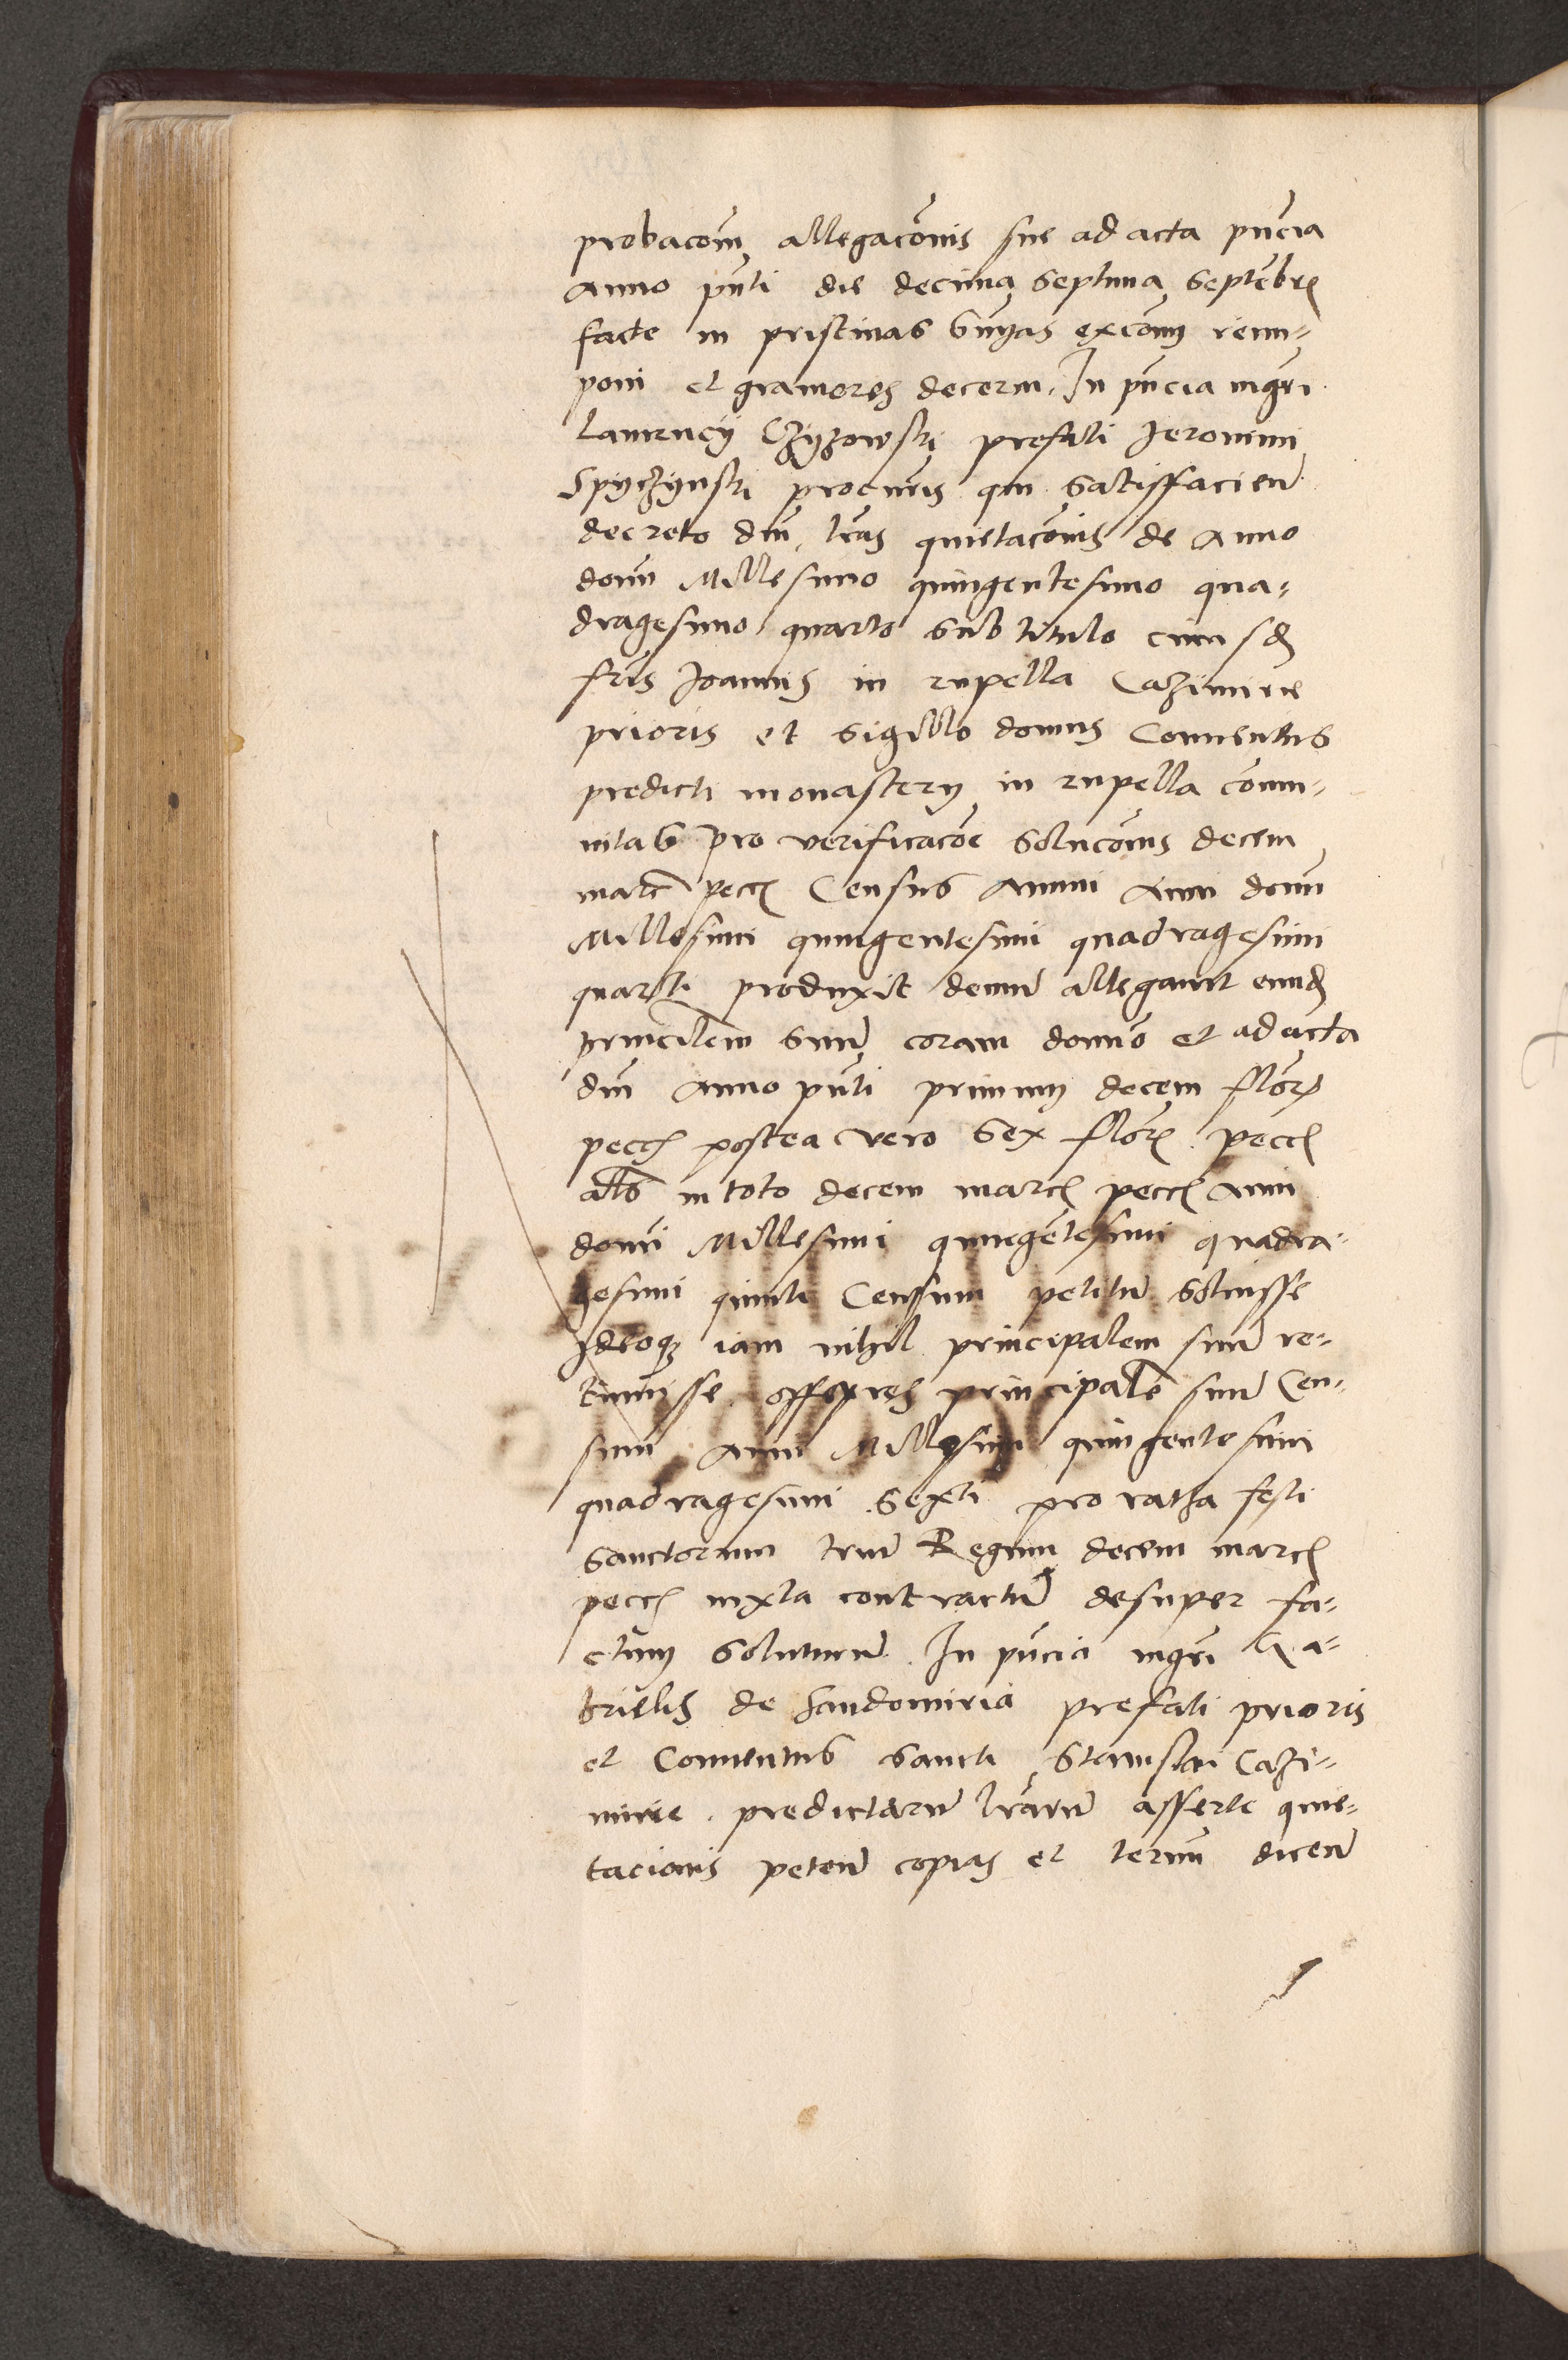 probacom allegacõnis sue ad acta pñcia
anno pñti die decima septima Septẽbr
facte in pristinas excõm reim=
poni et gramores decerni. In pñcia mgri
Laurency Czyzowski prefati Jeronimi
Spyczynski procuris qui satisfacien
decreto dni, lras quietacõnis de Anno
domi Millesimo quingentesimo qua=
dragesimo quarto sub titulo eiusd
fris Joannis in rupella Cazimirie
prioris et sigillo domus Conuentus
predicti monastery in rupella com=
nitas pro verificacõe solucõnis decem
marc pecc Census annui Anni domi
Millesimi quingentesimi quadragesimi
quarti produxit demũ allegauit eund
principlem suũ coram domĩo et ad acta
dni Anno pñti primum decem flor
pecc postea vero sex flor pecc
als in toto decem marc pecc Anni
domi Millesimi quingẽtesimi quadra=
gesimi quinti Censsum petitũ soluisse
Ideoq iam nihil principalem suũ re=
tinuisse offeres principalẽ suũ Cen=
sum Anni Millesimi quingentesimi
quadragesimi sexti pro ratha festi
sanctorum triũ Regum decem marc
pecc iuxta contractũ desuper fa=
ctum soluturũ. In pñcia mgri Ga=
brielis de Sandomiria prefati prioris
et Conuentus sancti Stanislai Cazi=
mirie. predictarũ lrarũ asserte quie=
tacionis peteñ copias et termĩ diceñ